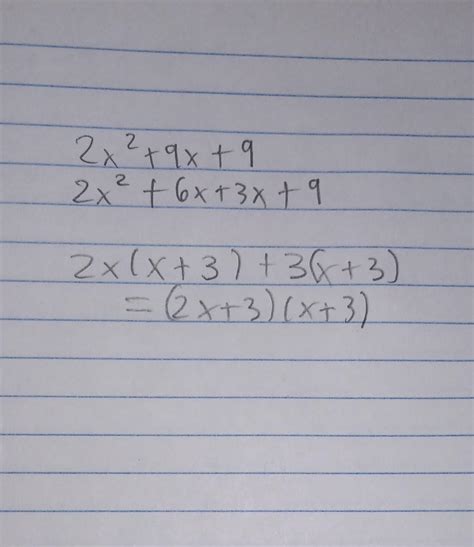 2x²+9x+9
2x²+6x+3x+9
2x(x+3)+3(x+3)
=(2x+3)(x+3)